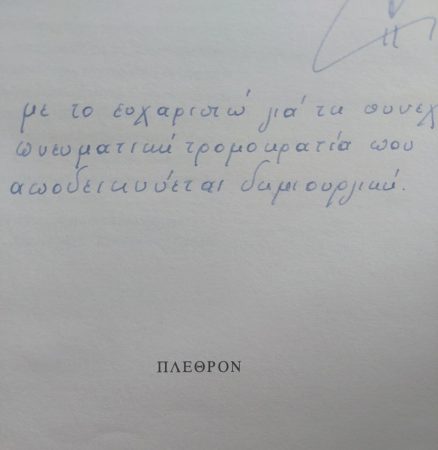 με το ευχαριστώ γιά τη συνεχ
πνευματική τρομοκρατία που
αποδεικνύεται δημιουργική.
ΠΛΕΘΡΟΝ